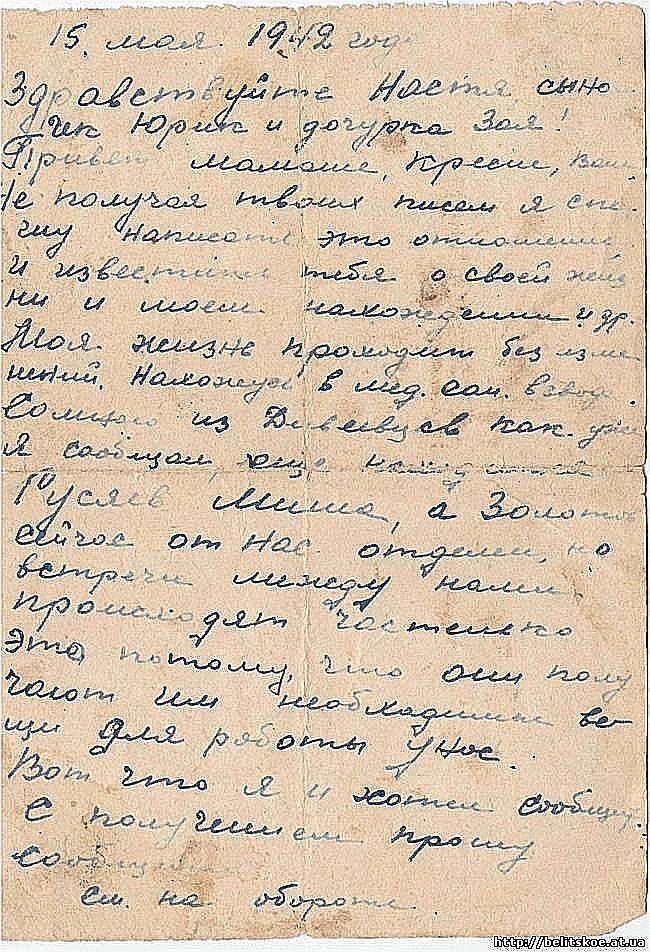 15 мая 1942 года
Здравствуйте Настя, сыно
чек Юрик и дочурка Зая!
Привет мамаше, Кресне, Вам
Не получая твоих писем я спе
шу написать это
и известить тебя о своей жиз
ни и моем нахождении и др.
Моя жизнь проходит без изме
нений. Нахожусь в мед. сан. взводе.
Со мною из Дивеевцев как уже
я сообщал, еще находится
Гусяев Миша, а Золотов
сейчас от нас отделен, но
встречи между нами
происходят частенько
это потому, что они полу
чают им необходимые ве
щи для работы у нас.
Вот что я и хотел сообщить.
С получением прошу
сообщить
см. на обороте.
http://belitskoe.at.ua